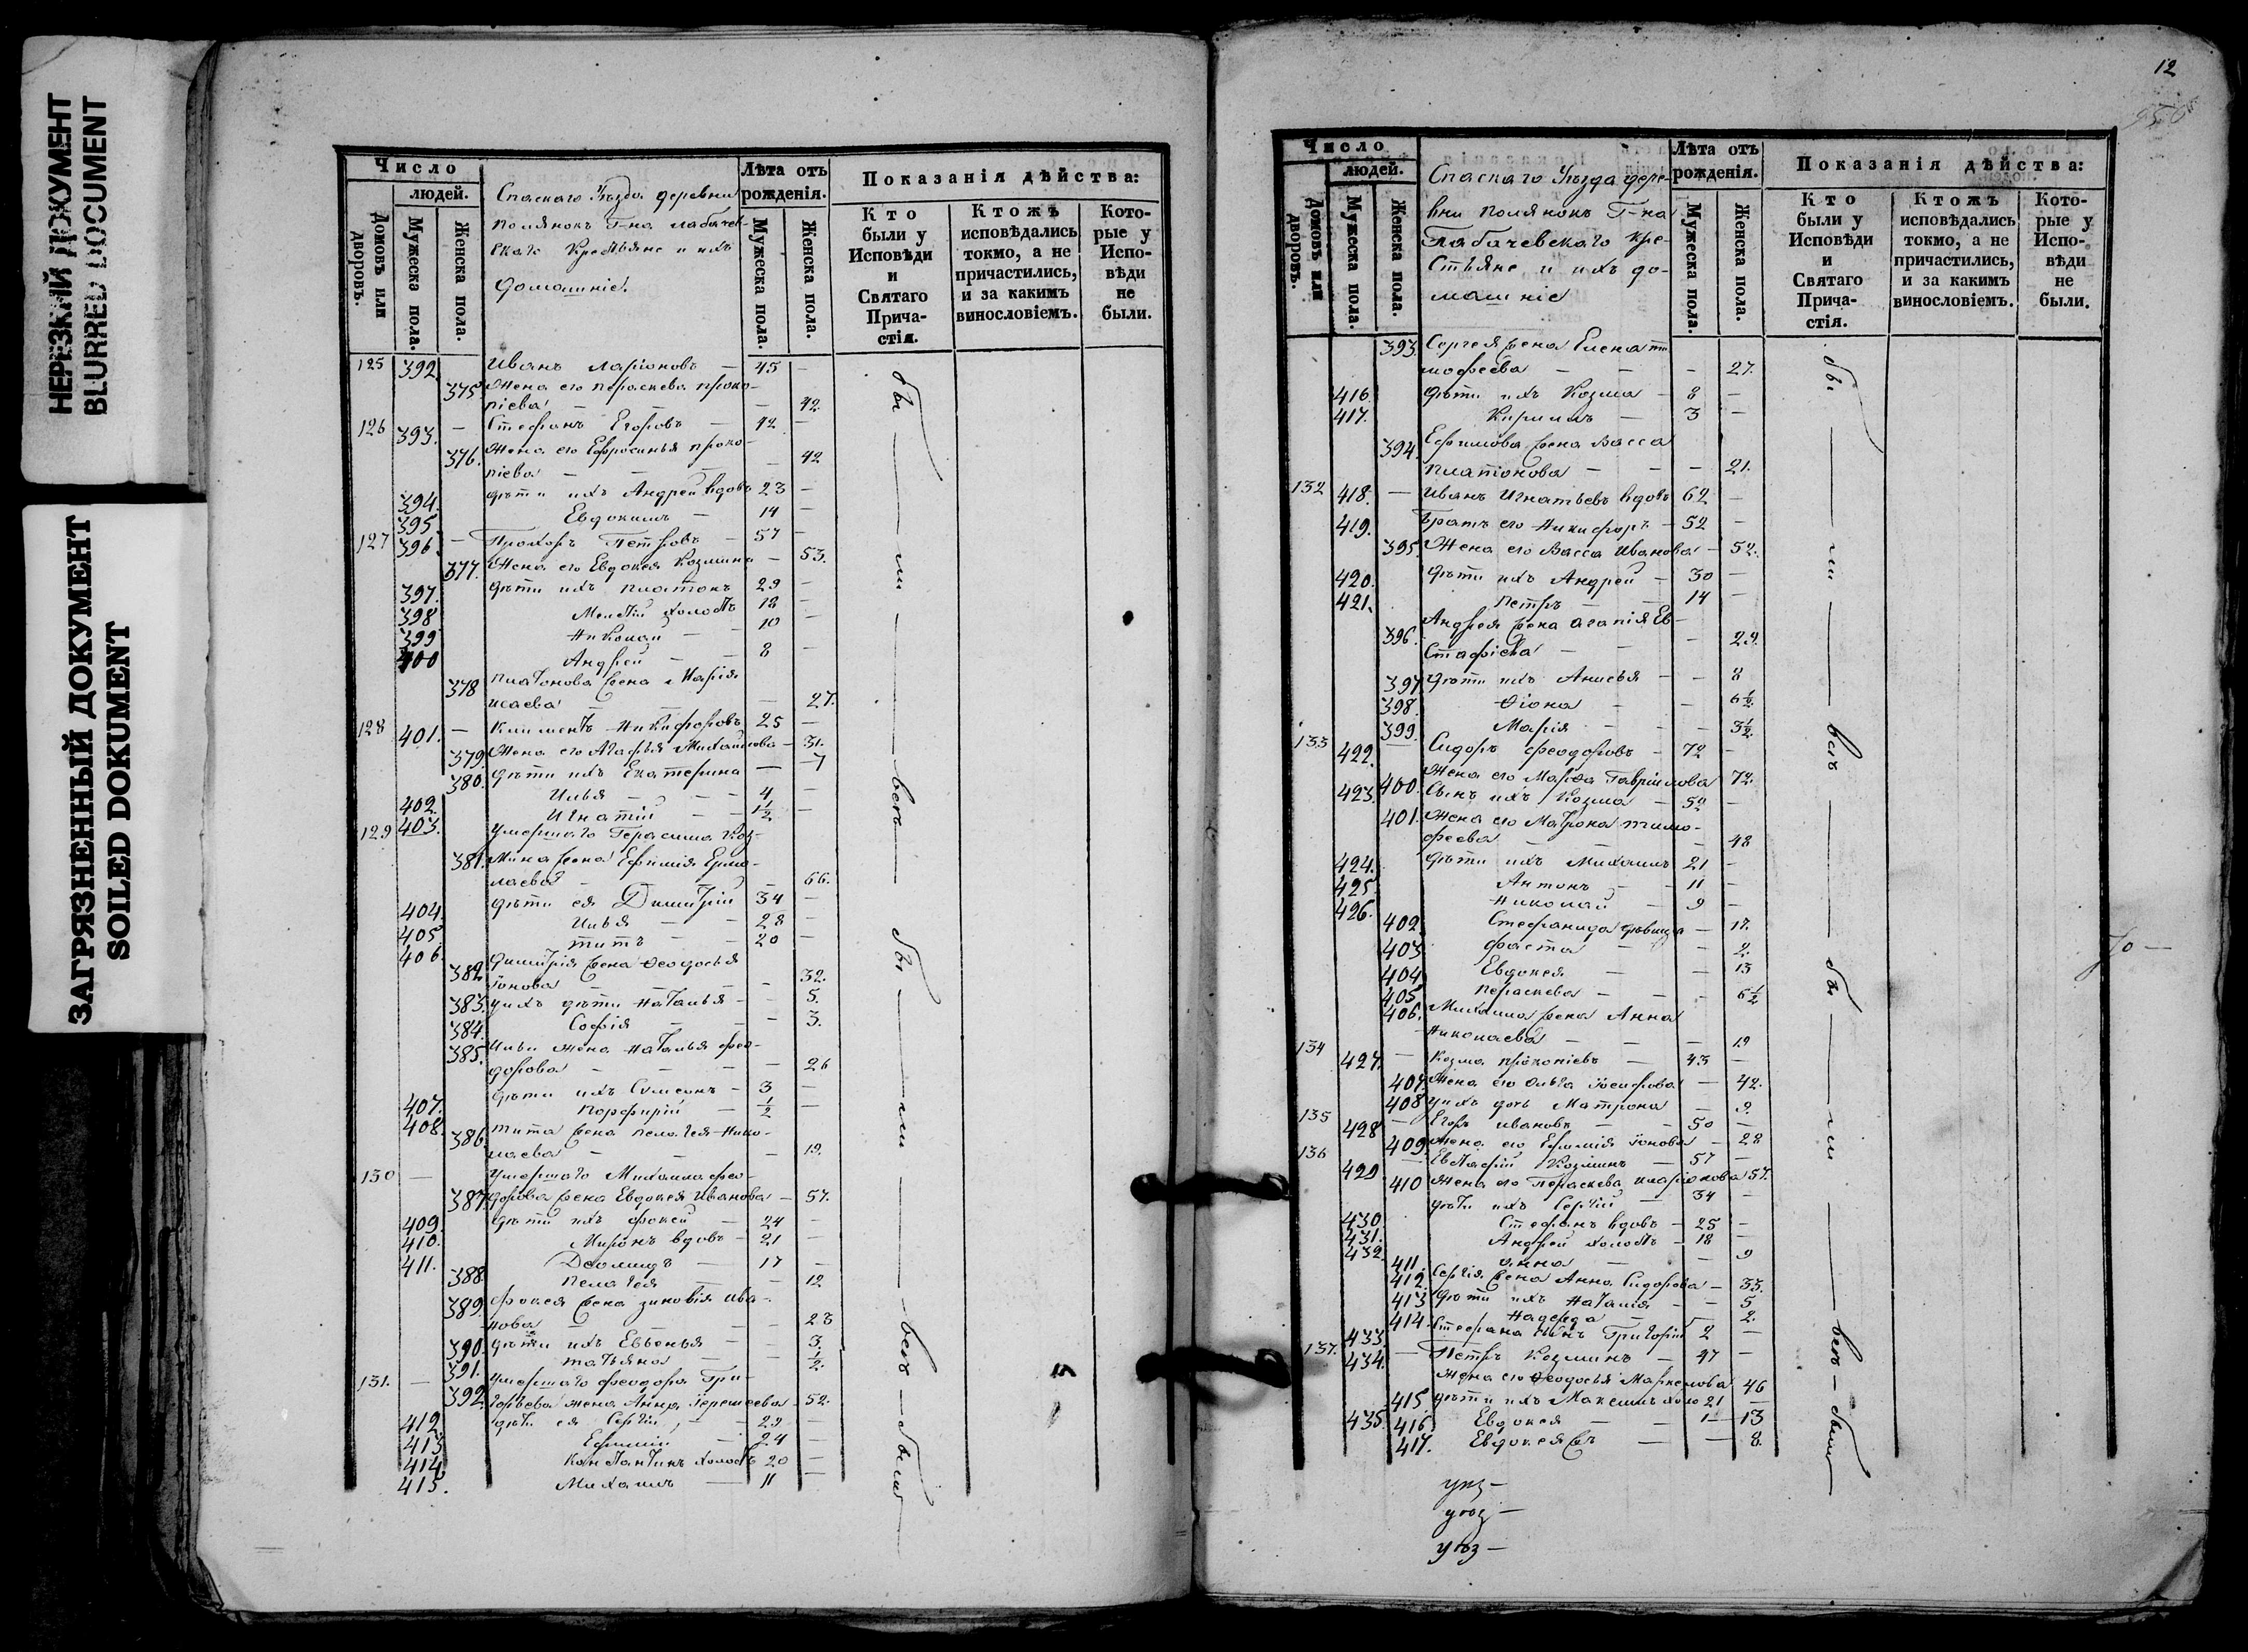 НЕРЕЗКИЙ ДОКУМЕНТ
BLURRED DOCUMENT
ЗАГРЯЗНЕННЫЙ ДОКУМЕНТ
SOILED DOKUMENT
Число
людей.
Домовъ или дворовъ.
Мужеска пола.
Женска пола.
Спаскаго Уѣзда деревни
Полянокъ Г-на
Крестьяне и ихъ
домашніе.
Лѣта отъ рожденія.
Мужеска пола.
Женска пола.
Показанія дѣйства:
Кто были у Исповѣди и Святаго Причастія.
Ктожъ исповѣдались токмо, а не причастились, и за какимъ винословіемъ.
Которые у Исповѣди не были.
125 392 Иванъ Ларіоновъ — 45 —
375 Жена его Пераскева Проко-
піева — — — 42
126 393. — Стефанъ Егоровъ — 42 —
376. Жена его Ефросинья Проко-
піева — — — 42
394. дѣти ихъ Андрей вдовъ 23 —
395. Евдокимъ — 14 —
127 396. — Прохоръ Петровъ — 57 —
377. Жена его Евдокея Козмина — 53.
397. дѣти ихъ Платонъ 29 —
398 холостъ 18 —
399 Николай — 10 —
400 Андрей — — 8 —
378 Платонова жена Марія
Исаева — — — 27.
128 401. — Климентъ Никифоровъ 25 —
379. Жена его Агафья Михайлова — 31.
380. дѣти ихъ Екатерина — 7
402. Илья — — 4 —
403. Игнатій — 1½ —
129 Умершаго Герасима Коз-
381. мина жена Ефимія Ермо-
лаева — — — 66.
404. дѣти ея Димитрій 34 —
405. Илья — — 28 —
406. Титъ — — 20 —
382 Димитрія жена Ѳеодосья
Іонова — — — 32.
383. у ихъ дѣти Наталья — — 5.
384. Софія — — 3.
385. Ильи жена Наталья Фео-
дорова — — — 26
407. дѣти ихъ Симеонъ — 3 —
408. Порфирій — ½ —
386. Тита жена Пелагея Нико-
лаева — — — 19.
130 — Умершаго Михаила Фео-
387. дорова жена Евдокея Иванова — 57.
409. дѣти ихъ Фокей — 24 —
410. Миронъ вдовъ — 21 —
411. Деомидъ — 17 —
388. Пелагея — — 12
389. Фокея жена Зиновія Ива-
нова — — — 23
390. дѣти ихъ Евгенья — — 3.
391. Татьяна — — ½.
131. — Умершаго Феодора Гри-
392. горьева жена Анна — 52.
412. дѣти ея Сергій — 29 —
413 Ефимій — 24 —
414. Константинъ холостъ 20 —
415. Михаилъ — 11 —
бы — ли — всѣ — бы — ли — всѣ — были
12
Число
людей.
Домовъ или дворовъ.
Мужеска пола.
Женска пола.
Спаскаго Уѣзда дере-
вни Полянокъ Г-на
кре-
стьяне и ихъ до-
машніе
Лѣта отъ рожденія.
Мужеска пола.
Женска пола.
Показанія дѣйства:
Кто были у Исповѣди и Святаго Причастія.
Ктожъ исповѣдались токмо, а не причастились, и за какимъ винословіемъ.
Которые у Исповѣди не были.
393. Сергея жена Елена Ти-
мофеева — — — 27.
416. дѣти ихъ Козма — 8 —
417. Кирилъ — 3 —
394. Ефимова жена Васса
Платонова — — — 21.
132 418. — Иванъ Игнатьевъ вдовъ 62 —
419. Братъ его Никифоръ — 52 —
395. Жена его Васса Иванова — 52.
420. дѣти ихъ Андрей — 30 —
421. Петръ — — 14 —
396. Андрея жена Агапія Ев-
стафіева — — — 29.
397. дѣти ихъ Анисья — — 8
398. Ѳіона — — 6½.
399. Марія — — 3½.
133 422. Сидоръ Феодоровъ — 72 —
400. Жена его Марѳа Гавріилова 72.
423. Сынъ ихъ Козма — 52 —
401. Жена его Матрона Тимо-
феева — — 48
424. дѣти ихъ Михаилъ 21 —
425. Антонъ — — 11 —
426. Николай — 9 —
402. Стефанида дѣвица — 17.
403 — — 2.
404 Евдокея — — 13
405. Пераскева — — 6½
406. Михаила жена Анна
Николаева — — — 19
134 427. — Козма Прокопіевъ — 43 —
407. Жена его Ольга Іосифова — 42.
408 у ихъ дочь Матрона — 9.
135 428 — Егоръ Ивановъ — — 50 —
409. Жена его Ефимія Іонова — 28
136 429 — Евстафій Козминъ — 57 —
410 Жена его Пераскева Иларіонова 57.
430. дѣти ихъ Сергій — 34 —
431. Стефанъ вдовъ — 25 —
432. Андрей холостъ — 18 —
411. Анна — — 9
412. Сергія жена Анна Сидорова — 33.
413 дѣти ихъ Наталія — — 5
414. Надежда — — 2.
433. Стефана сынъ Григорій 2 —
137. 434. — Петръ Козминъ — 47 —
Жена его Ѳеодосья Маркелова 46
415. дѣти ихъ Максимъ холо 21 —
435. 416. Евдокея — — 13
417. Евдокея — — 8.
бы — ли — всѣ — бы — ли — всѣ — были